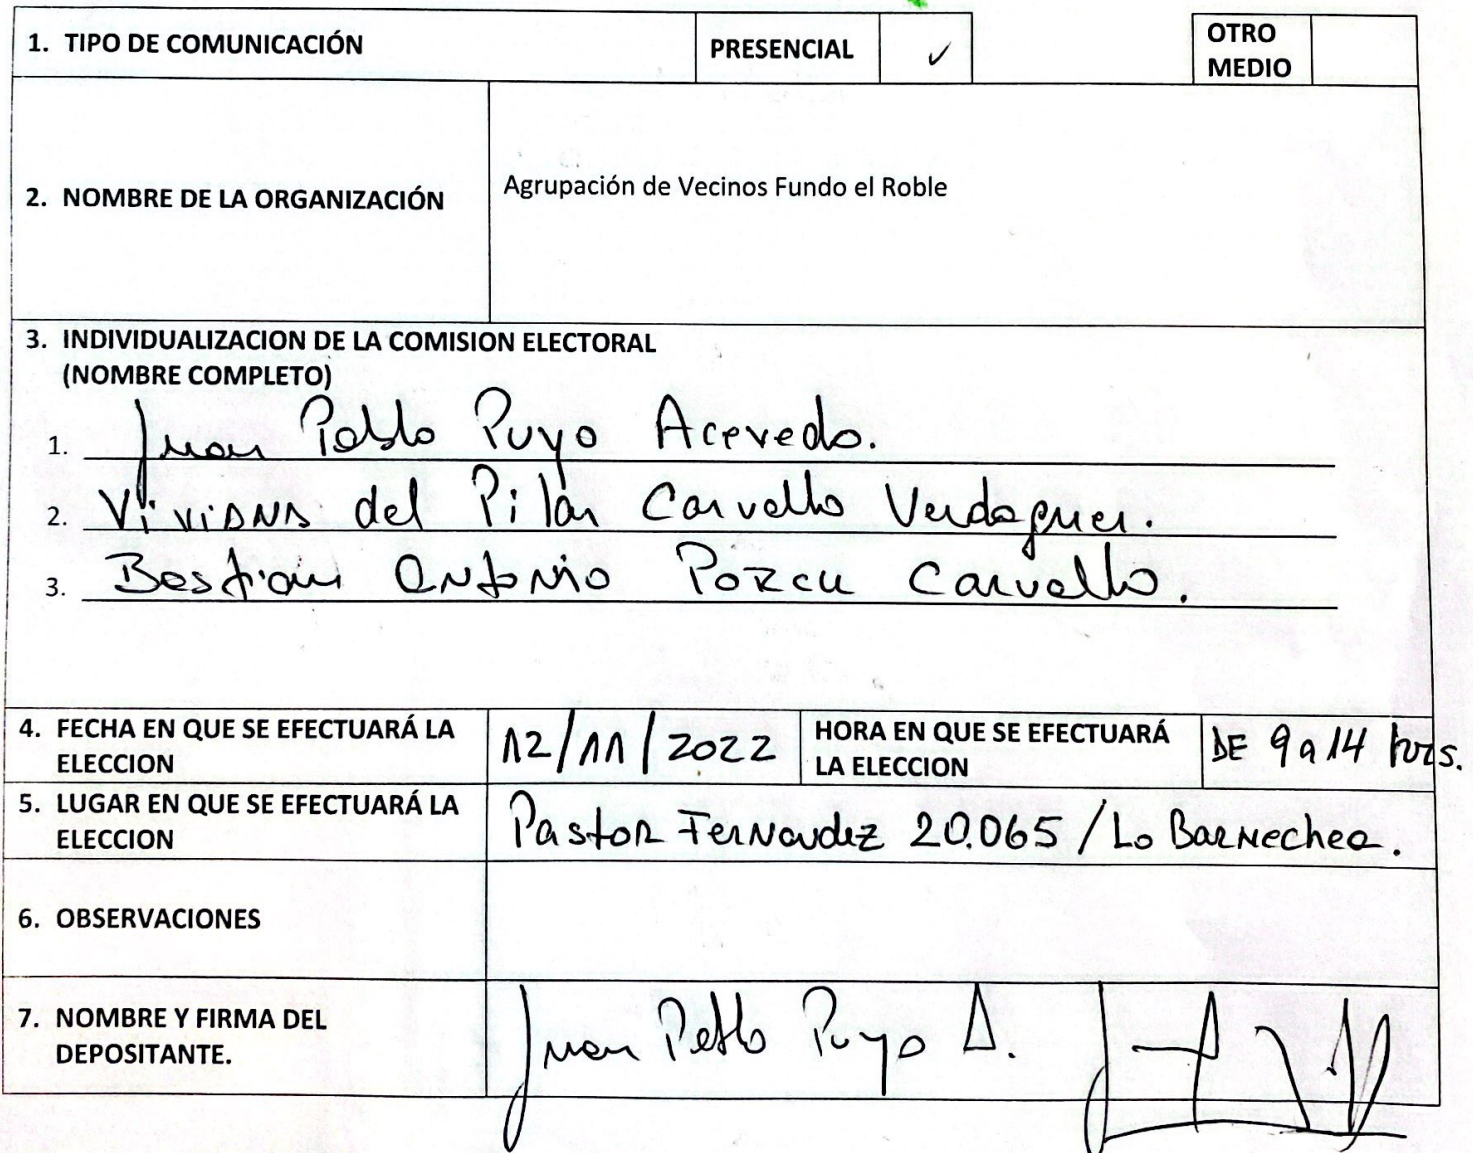 1. TIPO DE COMUNICACIÓN PRESENCIAL ✓ OTRO MEDIO
2. NOMBRE DE LA ORGANIZACIÓN Agrupación de Vecinos Fundo el Roble
3. INDIVIDUALIZACION DE LA COMISION ELECTORAL
(NOMBRE COMPLETO)
1. Juan Pablo Puyo Acevedo.
2. Viviana del Pilar Carvallo Verdaguer.
3. Bastian Antonio Porcu Carvallo.
4. FECHA EN QUE SE EFECTUARÁ LA ELECCION 12/11/2022 HORA EN QUE SE EFECTUARÁ LA ELECCION DE 9 a 14 hrs.
5. LUGAR EN QUE SE EFECTUARÁ LA ELECCION Pastor Fernandez 20.065 / Lo Barnechea.
6. OBSERVACIONES
7. NOMBRE Y FIRMA DEL DEPOSITANTE. Juan Pablo Puyo A.